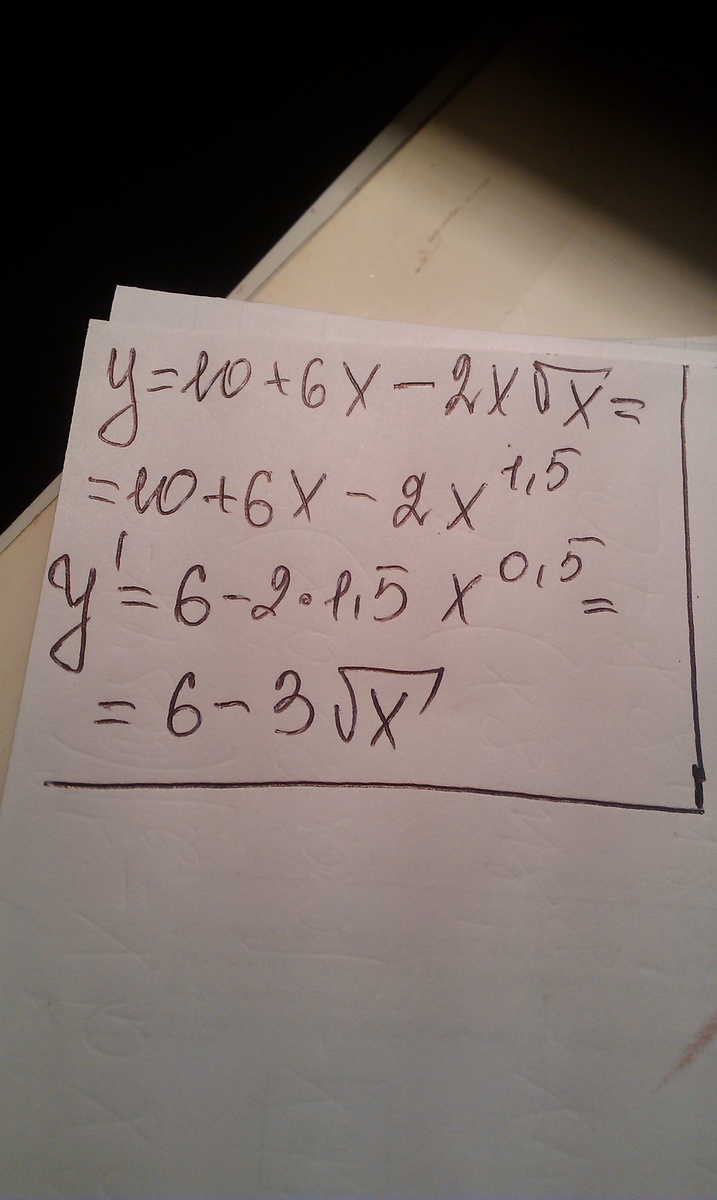 y=10+6x-2x√x=
=10+6x-2x^1,5
y'=6-2·1,5 x^0,5=
=6-3√x